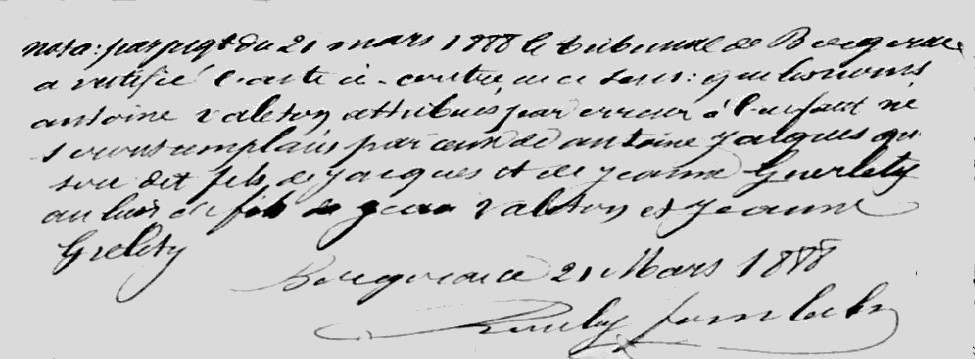 nota: par jugt du 21 mars 1888 le tribunal de Bergerac
a rectifié l'acte ci-contre, en ce sens: que les noms
antoine Valeton attribués par erreur à l'enfant né
seront remplacés par ceux de antoine Jacques qu
soit dit fils de Jacques et de jeanne Guerlety
au lieu de fils de jean Valeton et Jeanne
Grelety
Bergerac 21 Mars 1888